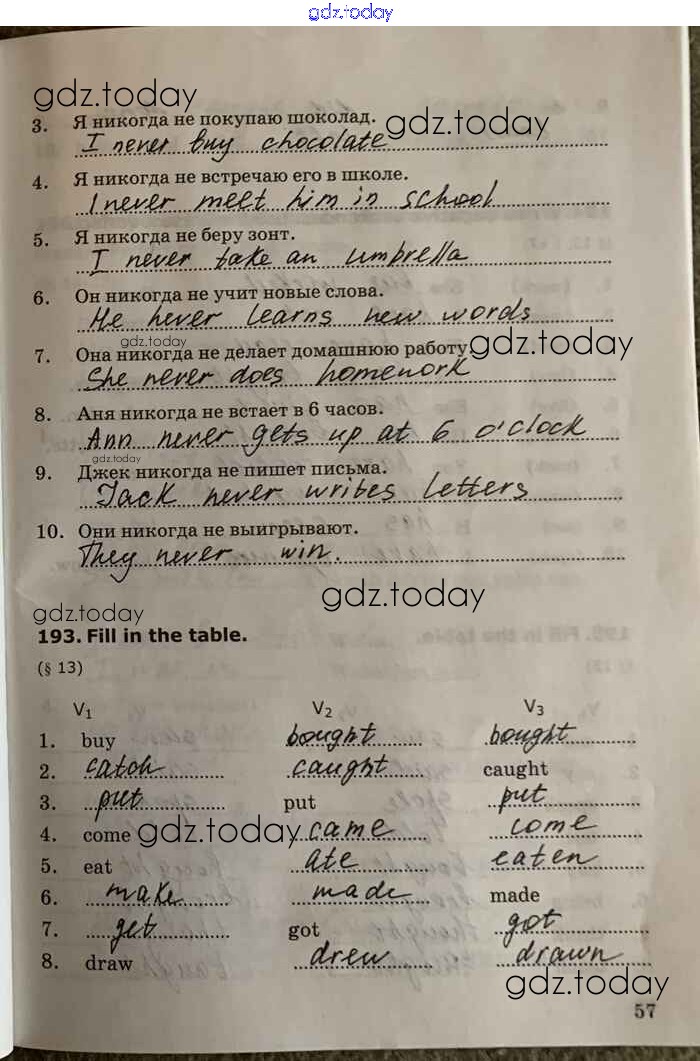 gdz.today
gdz.today
3. Я никогда не покупаю шоколад. gdz.today
I never buy chocolate
4. Я никогда не встречаю его в школе.
I never meet him in school
5. Я никогда не беру зонт.
I never take an umbrella
6. Он никогда не учит новые слова.
He never learns new words
gdz.today
7. Она никогда не делает домашнюю работу gdz.today
She never does homework
8. Аня никогда не встает в 6 часов.
Ann never gets up at 6 o'clock
gdz.today
9. Джек никогда не пишет письма.
Jack never writes letters
10. Они никогда не выигрывают.
They never win.
gdz.today
gdz.today
193. Fill in the table.
(§ 13)
V1 V2 V3
1. buy bought bought
2. catch caught caught
3. put put put
4. come gdz.today came come
5. eat ate eaten
6. make made made
7. get got got
8. draw drew drawn
gdz.today
57